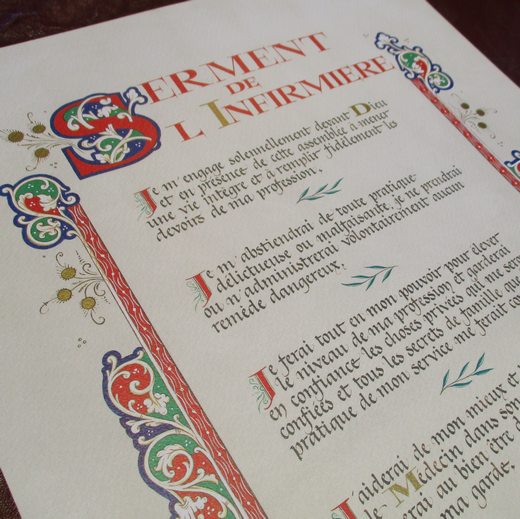 SERMENT
DE
L'INFIRMIÈRE
Je m'engage solennellement devant Dieu
et en présence de cette assemblée à mener
une vie intègre et à remplir fidèlement les
devoirs de ma profession.
Je m'abstiendrai de toute pratique
délictueuse ou malfaisante, je ne prendrai
ou n'administrerai volontairement aucun
remède dangereux.
Je ferai tout en mon pouvoir pour élever
le niveau de ma profession et garderai
en confiance les choses privées qui me sero
confiées et tous les secrets de famille que
pratique de mon service me ferait co
J'aiderai de mon mieux
le Médecin dans son
erai au bien être d
ma garde.